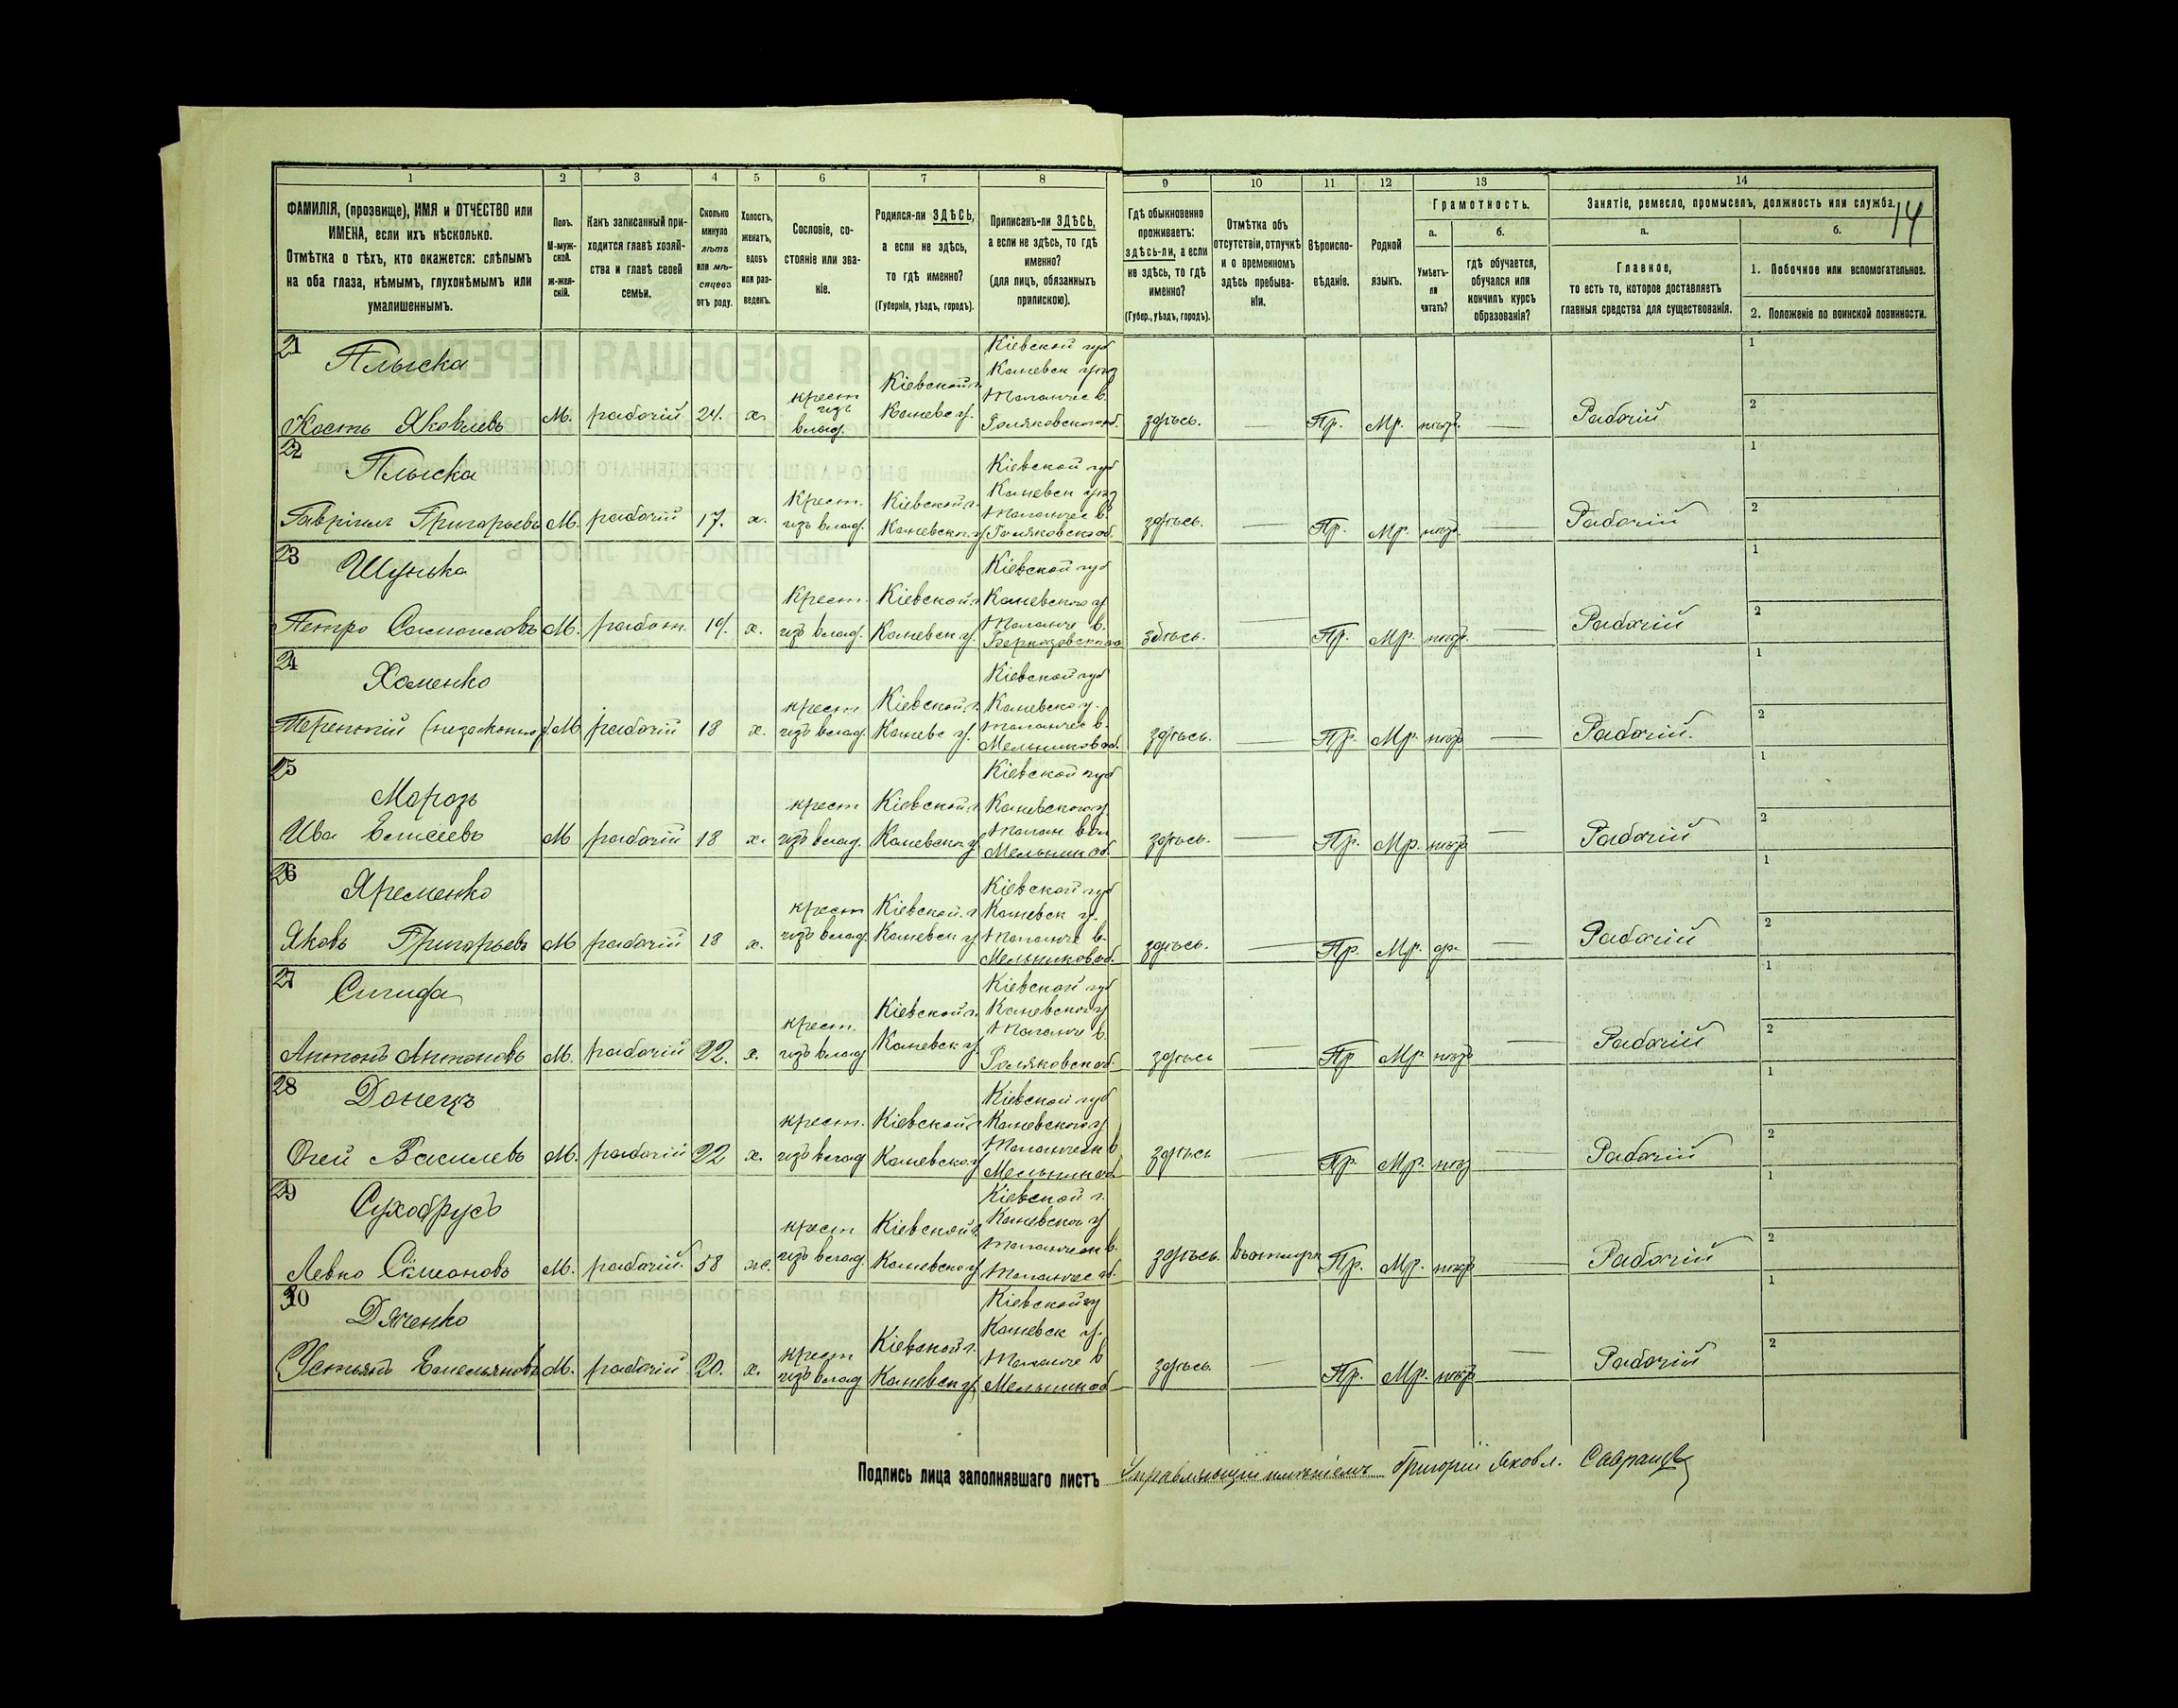 14
1 2 3 4 5 6 7 8 9 10 11 12 13 14
ФАМИЛІЯ, (прозвище), ИМЯ и ОТЧЕСТВО или ИМЕНА, если ихъ нѣсколько.
Отмѣтка о тѣхъ, кто окажется: слѣпымъ на оба глаза, нѣмымъ, глухонѣмымъ или умалишеннымъ.
Полъ. М-муж-ской. Ж-жен-скій.
Какъ записанный при-ходится главѣ хозяй-ства и главѣ своей семьи.
Сколько минуло лѣтъ или мѣ-сяцевъ отъ роду.
Холостъ, женатъ, вдовъ или раз-веденъ.
Сословіе, со-стояніе или зва-ніе.
Родился-ли ЗДѢСЬ, а если не здѣсь, то гдѣ именно?
(Губернія, уѣздъ, городъ).
Приписанъ-ли ЗДѢСЬ, а если не здѣсь, то гдѣ именно?
(для лицъ, обязанныхъ припискою).
Гдѣ обыкновенно проживаетъ: здѣсь-ли, а если не здѣсь, то гдѣ именно?
(Губер., уѣздъ, городъ).
Отмѣтка объ отсутствіи, отлучкѣ и о временномъ здѣсь пребыва-ніи.
Вѣроиспо-вѣданіе.
Родной языкъ.
Грамотность.
а. Умѣетъ-ли читать?
б. гдѣ обучается, обучался или кончилъ курсъ образованія?
Занятіе, ремесло, промыселъ, должность или служба.
а. Главное, то есть то, которое доставляетъ главныя средства для существованія.
б. 1. Побочное или вспомогательное.
2. Положеніе по воинской повинности.
21 Плыска Кіевской губ 1
Каневск уѣзд
крест Кіевской г. Таганчес в. 2
Кость Яковлевъ М. рабочій 24. х. изъ влад. Канев у. Голяковского об. здѣсь. — Пр. Мр. нѣтъ. — Рабочій
22 Плыска Кіевской губ 1
Крест. Кіевской г. Каневск уѣзд 2
Гавріилъ Григорьевъ М. рабочій 17. х. изъ влад. Каневског у. Таганчес в. Голяковско об. здѣсь. — Пр. Мр. нѣтъ. — Рабочій
23 Шулька Кіевской губ 1
Крест. Кіевской г. Каневского у 2
Петро Самоиловъ М. работ. 19. х. изъ влад. Каневск у. Таганче в. здѣсь. — Пр. Мр. нѣтъ. — Рабочій
24 Хоменко Кіевской губ 1
крест Кіевской г. Каневско у. 2
Терентій (незаконнор). М рабочій 18 х. изъ влад. Каневс у. Таганчес в. Мельников об. здѣсь. — Пр. Мр. нѣтъ — Рабочій.
25 Морозъ Кіевской губ 1
крест Кіевской г. Каневского у 2
Ива Елисеевъ М рабочій 18 х. изъ влад. Каневског у Таган вол Мельник об. здѣсь. — Пр. Мр. нѣтъ — Рабочій
26 Яременко Кіевской губ 1
крест Кіевской г Каневск у. 2
Яковъ Григорьевъ М рабочій 18 х. изъ влад. Каневск у Таганче в. Мельников об. здѣсь. — Пр. Мр. да — Рабочій
27 Сигида Кіевской губ 1
крест. Кіевской г. Каневского у 2
Антонъ Антоновъ М. рабочій 22. х. изъ влад Каневск у. Таганче в. Голяковск об. здѣсь — Пр Мр. нѣтъ — Рабочій
28 Донецъ Кіевской губ 1
крест. Кіевской г Каневского у 2
Васильевъ М. рабочій 22 х. изъ влад Каневског у Таганческ в Мельник об. здѣсь — Пр. Мр. нѣтъ — Рабочій
29 Сухобрусъ Кіевской г. 1
крест Кіевской г. Каневског у 2
Левко Симеоновъ М. рабочій. 58 ж. изъ влад. Каневског у Таганческ в. Таганчес об. здѣсь. въ отлучк Пр. Мр. нѣтъ — Рабочій
30 Дяченко Кіевской гу 1
крест Кіевской г. Каневск у. 2
Устьянъ Емельяновъ М. рабочій 20. х. изъ влад Каневск у. Таганче в Мельник об здѣсь. — Пр. Мр. нѣтъ — Рабочій
Подпись лица заполнявшаго листъ Управляющій имѣніемъ Григорій Яковл.